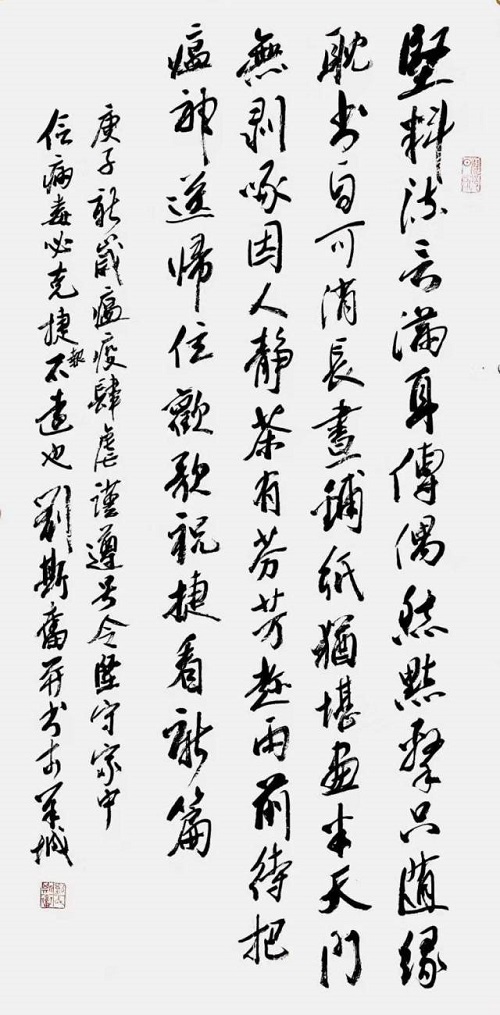 堅料流言滿耳傳偶然點擊只隨緣
耽书自可消長晝鋪紙猶堪畫半天門
無剥啄因人靜茶有芬芳趁雨前待把
瘟神送歸位歡歌祝捷看新篇
庚子新歲瘟疫肆虐謹遵号令堅守家中
信病毒必克捷報不遠也劉斯奮并书於羊城